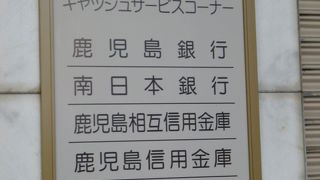 キャッシュサービスコーナー
鹿児島銀行
南日本銀行
鹿児島相互信用金庫
鹿児島信用金庫